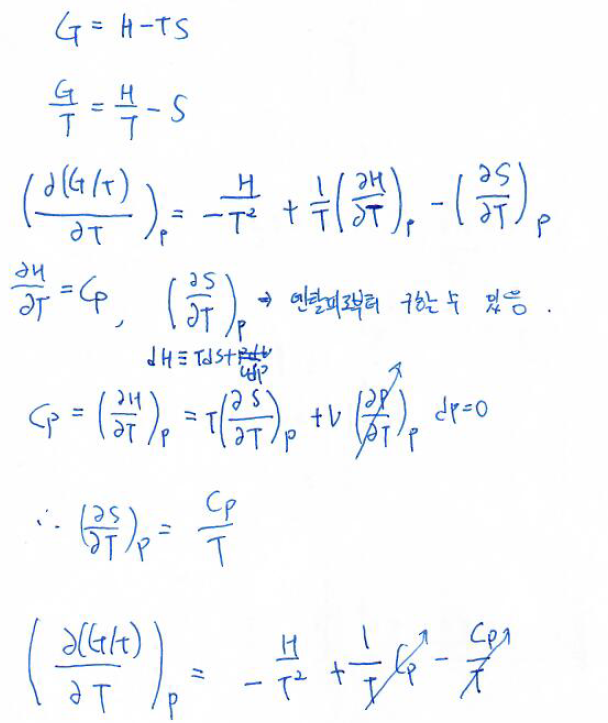 G = H-TS
G/T = H/T - S
(∂(G/T)/∂T)_P = -H/T² + 1/T(∂H/∂T)_P - (∂S/∂T)_P
∂H/∂T = Cp, (∂S/∂T)_P → 엔탈피로부터 구하는 수 있음.
dH ≡ TdS+Vdp
Cp = (∂H/∂T)_P = T(∂S/∂T)_P + V(∂P/∂T)_P dP=0
∴ (∂S/∂T)_P = Cp/T
(∂(G/T)/∂T)_P = -H/T² + 1/T Cp - Cp/T